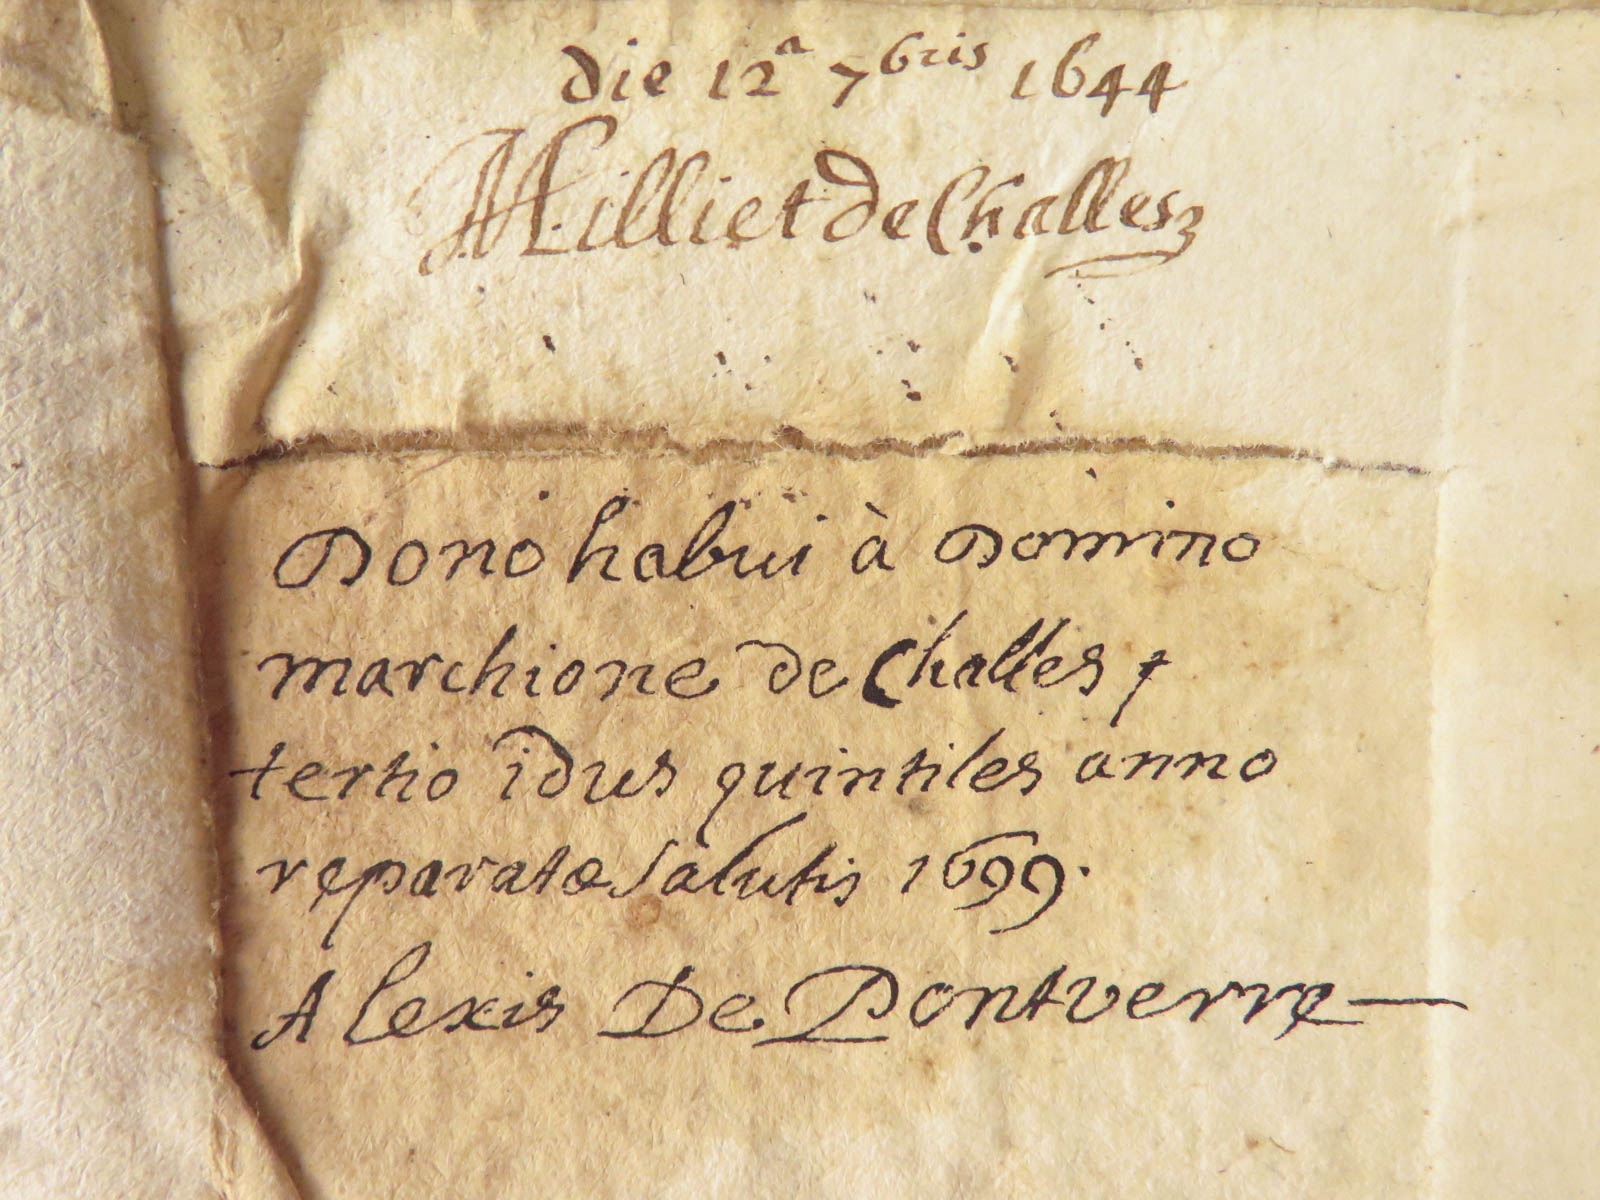 die 12ᵃ 7ᵇʳⁱˢ 1644
Milliet de Challes
Dono habui à Domino
marchione de Challes,
tertio idus quintiles anno
reparatæ salutis 1699.
Alexis De Pontverre